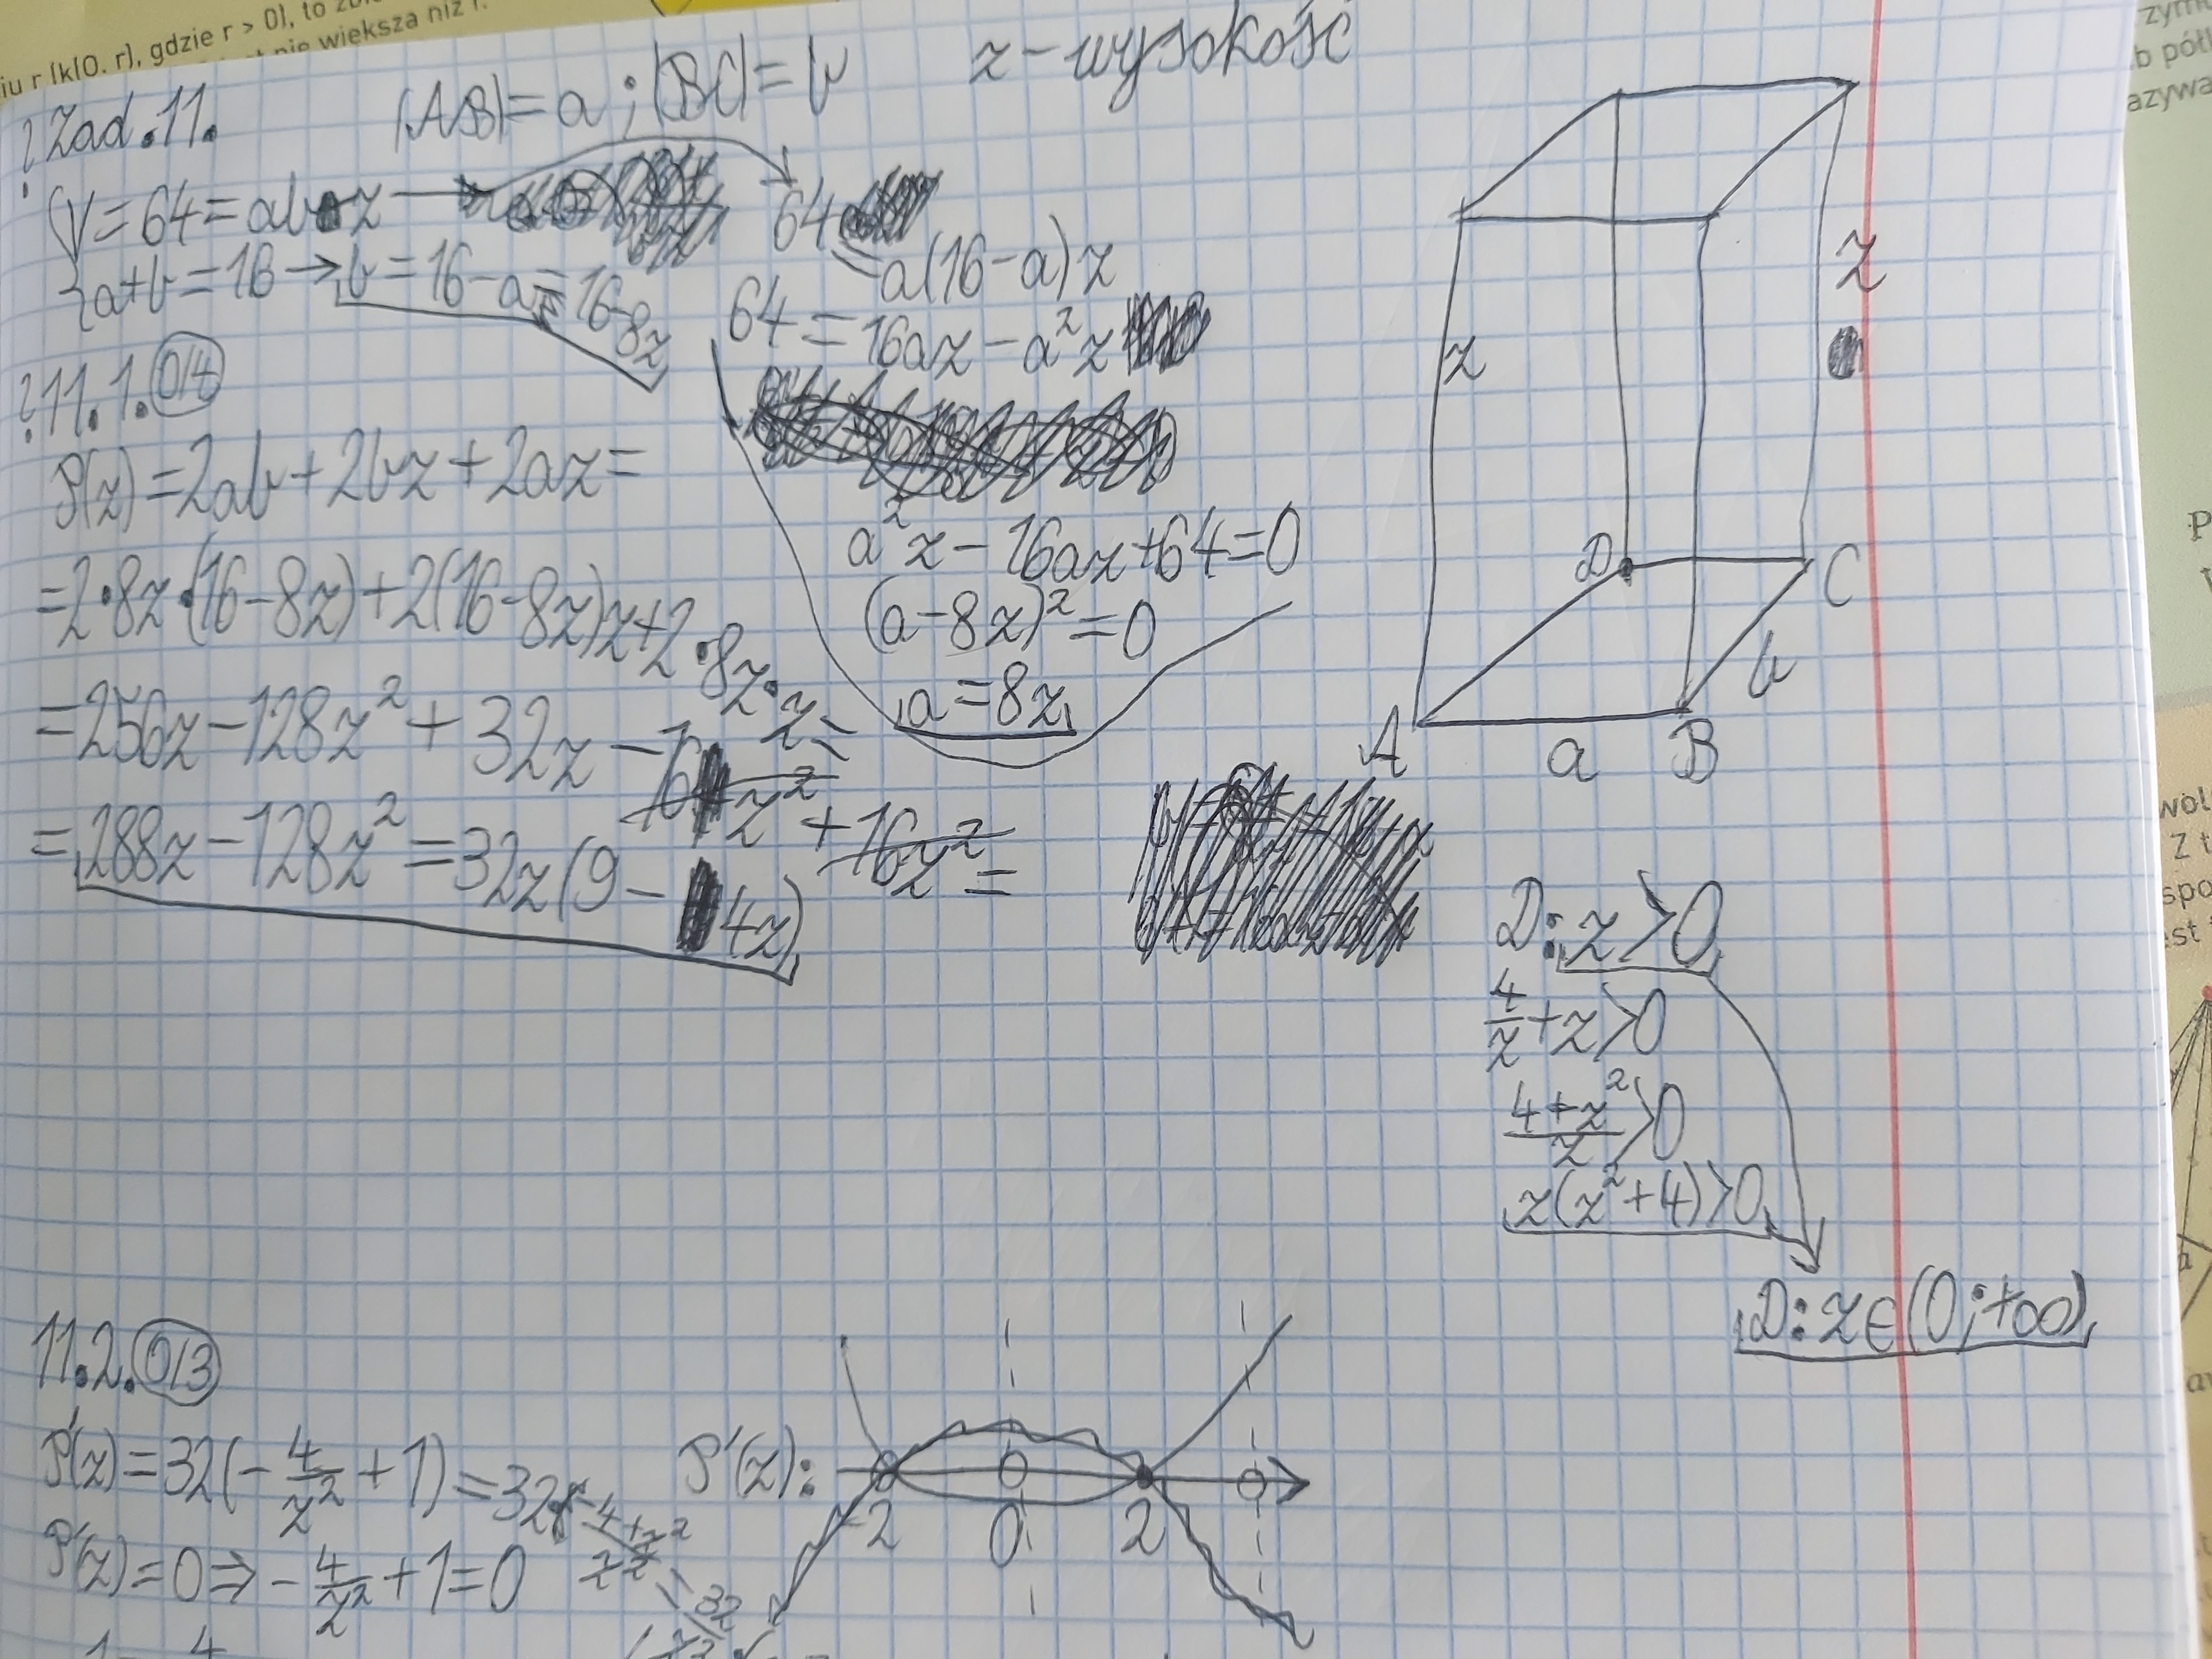 iu r [k(O, r], gdzie r > 0], to
nie większa niż r.
? Zad. 11.
|AB| = a ; |BC| = b
z - wysokość
V = 64 = abz
a+b = 16 → b = 16 - a = 16 - 8z
64 = a(16-a)z
64 = 16az - a²z
a²z - 16az + 64 = 0
(a - 8z)² = 0
a = 8z
? 11.1. 0/4
P(z) = 2ab + 2bz + 2az =
= 2·8z·(16-8z) + 2(16-8z)z + 2·8z·z =
= 256z - 128z² + 32z - 16z² + 16z² =
= 288z - 128z² = 32z(9 - 4z)
z
z
D
C
A
a
B
b
D: z > 0
4/z + z > 0
(4+z²)/z > 0
z(z²+4) > 0
D: z ∈ (0; +∞)
11.2. 0/3
P'(z) = 32(-4/z² + 1) = 32·(-4+z²)/z² = 32/z²
P'(z) = 0 ⇒ -4/z² + 1 = 0
P'(z):
-2 0 2
zym
b pół
azywa
wol
Z t
spo
est